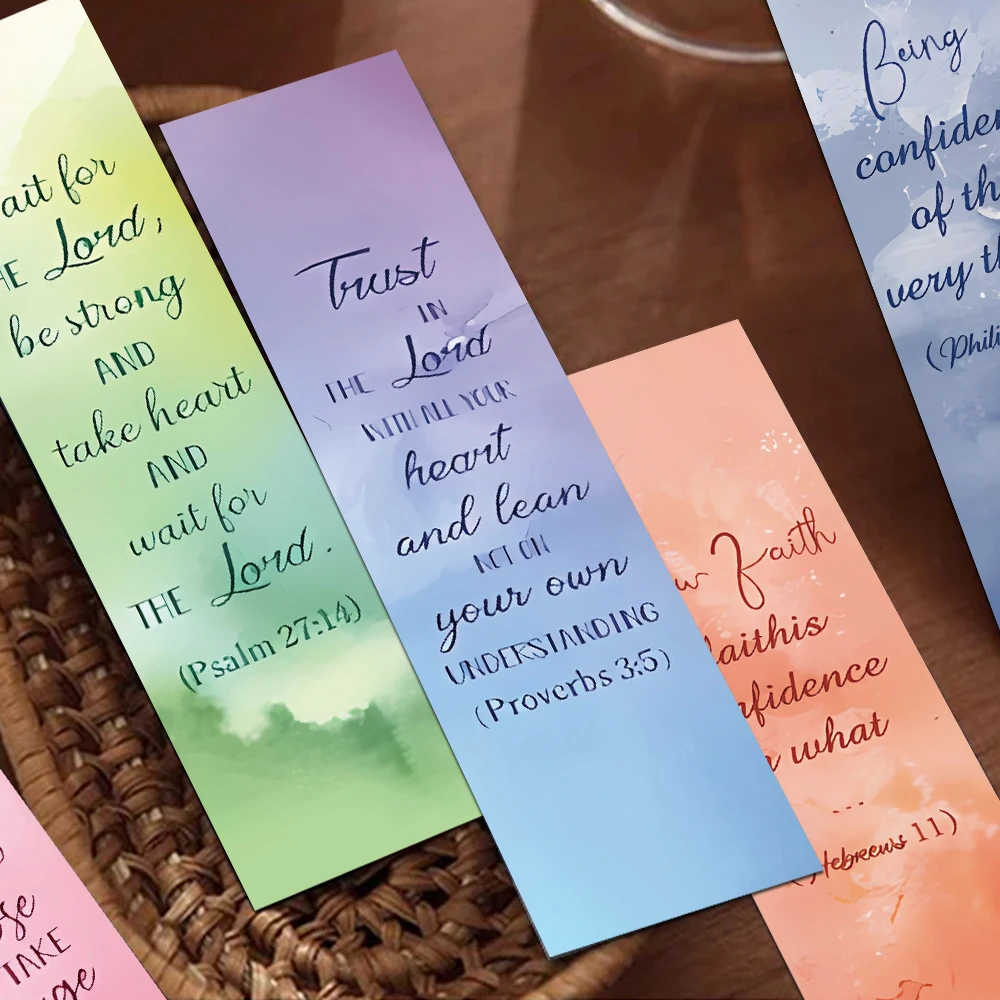 ait for
HE Lord,
be strong
AND
take heart
AND
wait for
THE Lord.
(Psalm 27:14)
Trust
IN
THE Lord
WITH ALL YOUR
heart
and lean
NOT ON
your own
UNDERSTANDING
(Proverbs 3:5)
w Faith
faithis
nfidence
n what
...
(Hebreews 11)
Being
confiden
of th
very th
(Phili
se
TAKE
ge